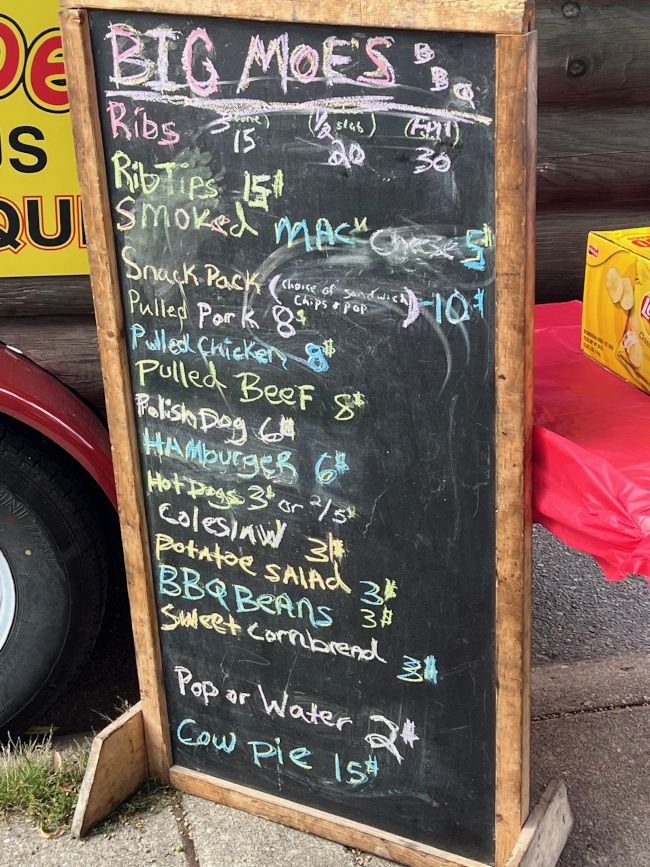 BIG MOE'S BBQ
Ribs 3 (bone) 15 (½ slab) 20 (Full slab) 30
Rib Tips 15$
Smoked MAC n Cheese 5$
Snack Pack (choice of sandwich Chips & pop) -10$
Pulled Pork 8$
Pulled Chicken 8$
Pulled BEEF 8$
Polish Dog 6$
HAmburgeR 6$
Hot Dogs 3$ or 2/5$
Coleslaw 3$
Potatoe SALAD 3$
BBQ BEANS 3$
Sweet Cornbread 3$
Pop or Water 2$
Cow Pie 15$